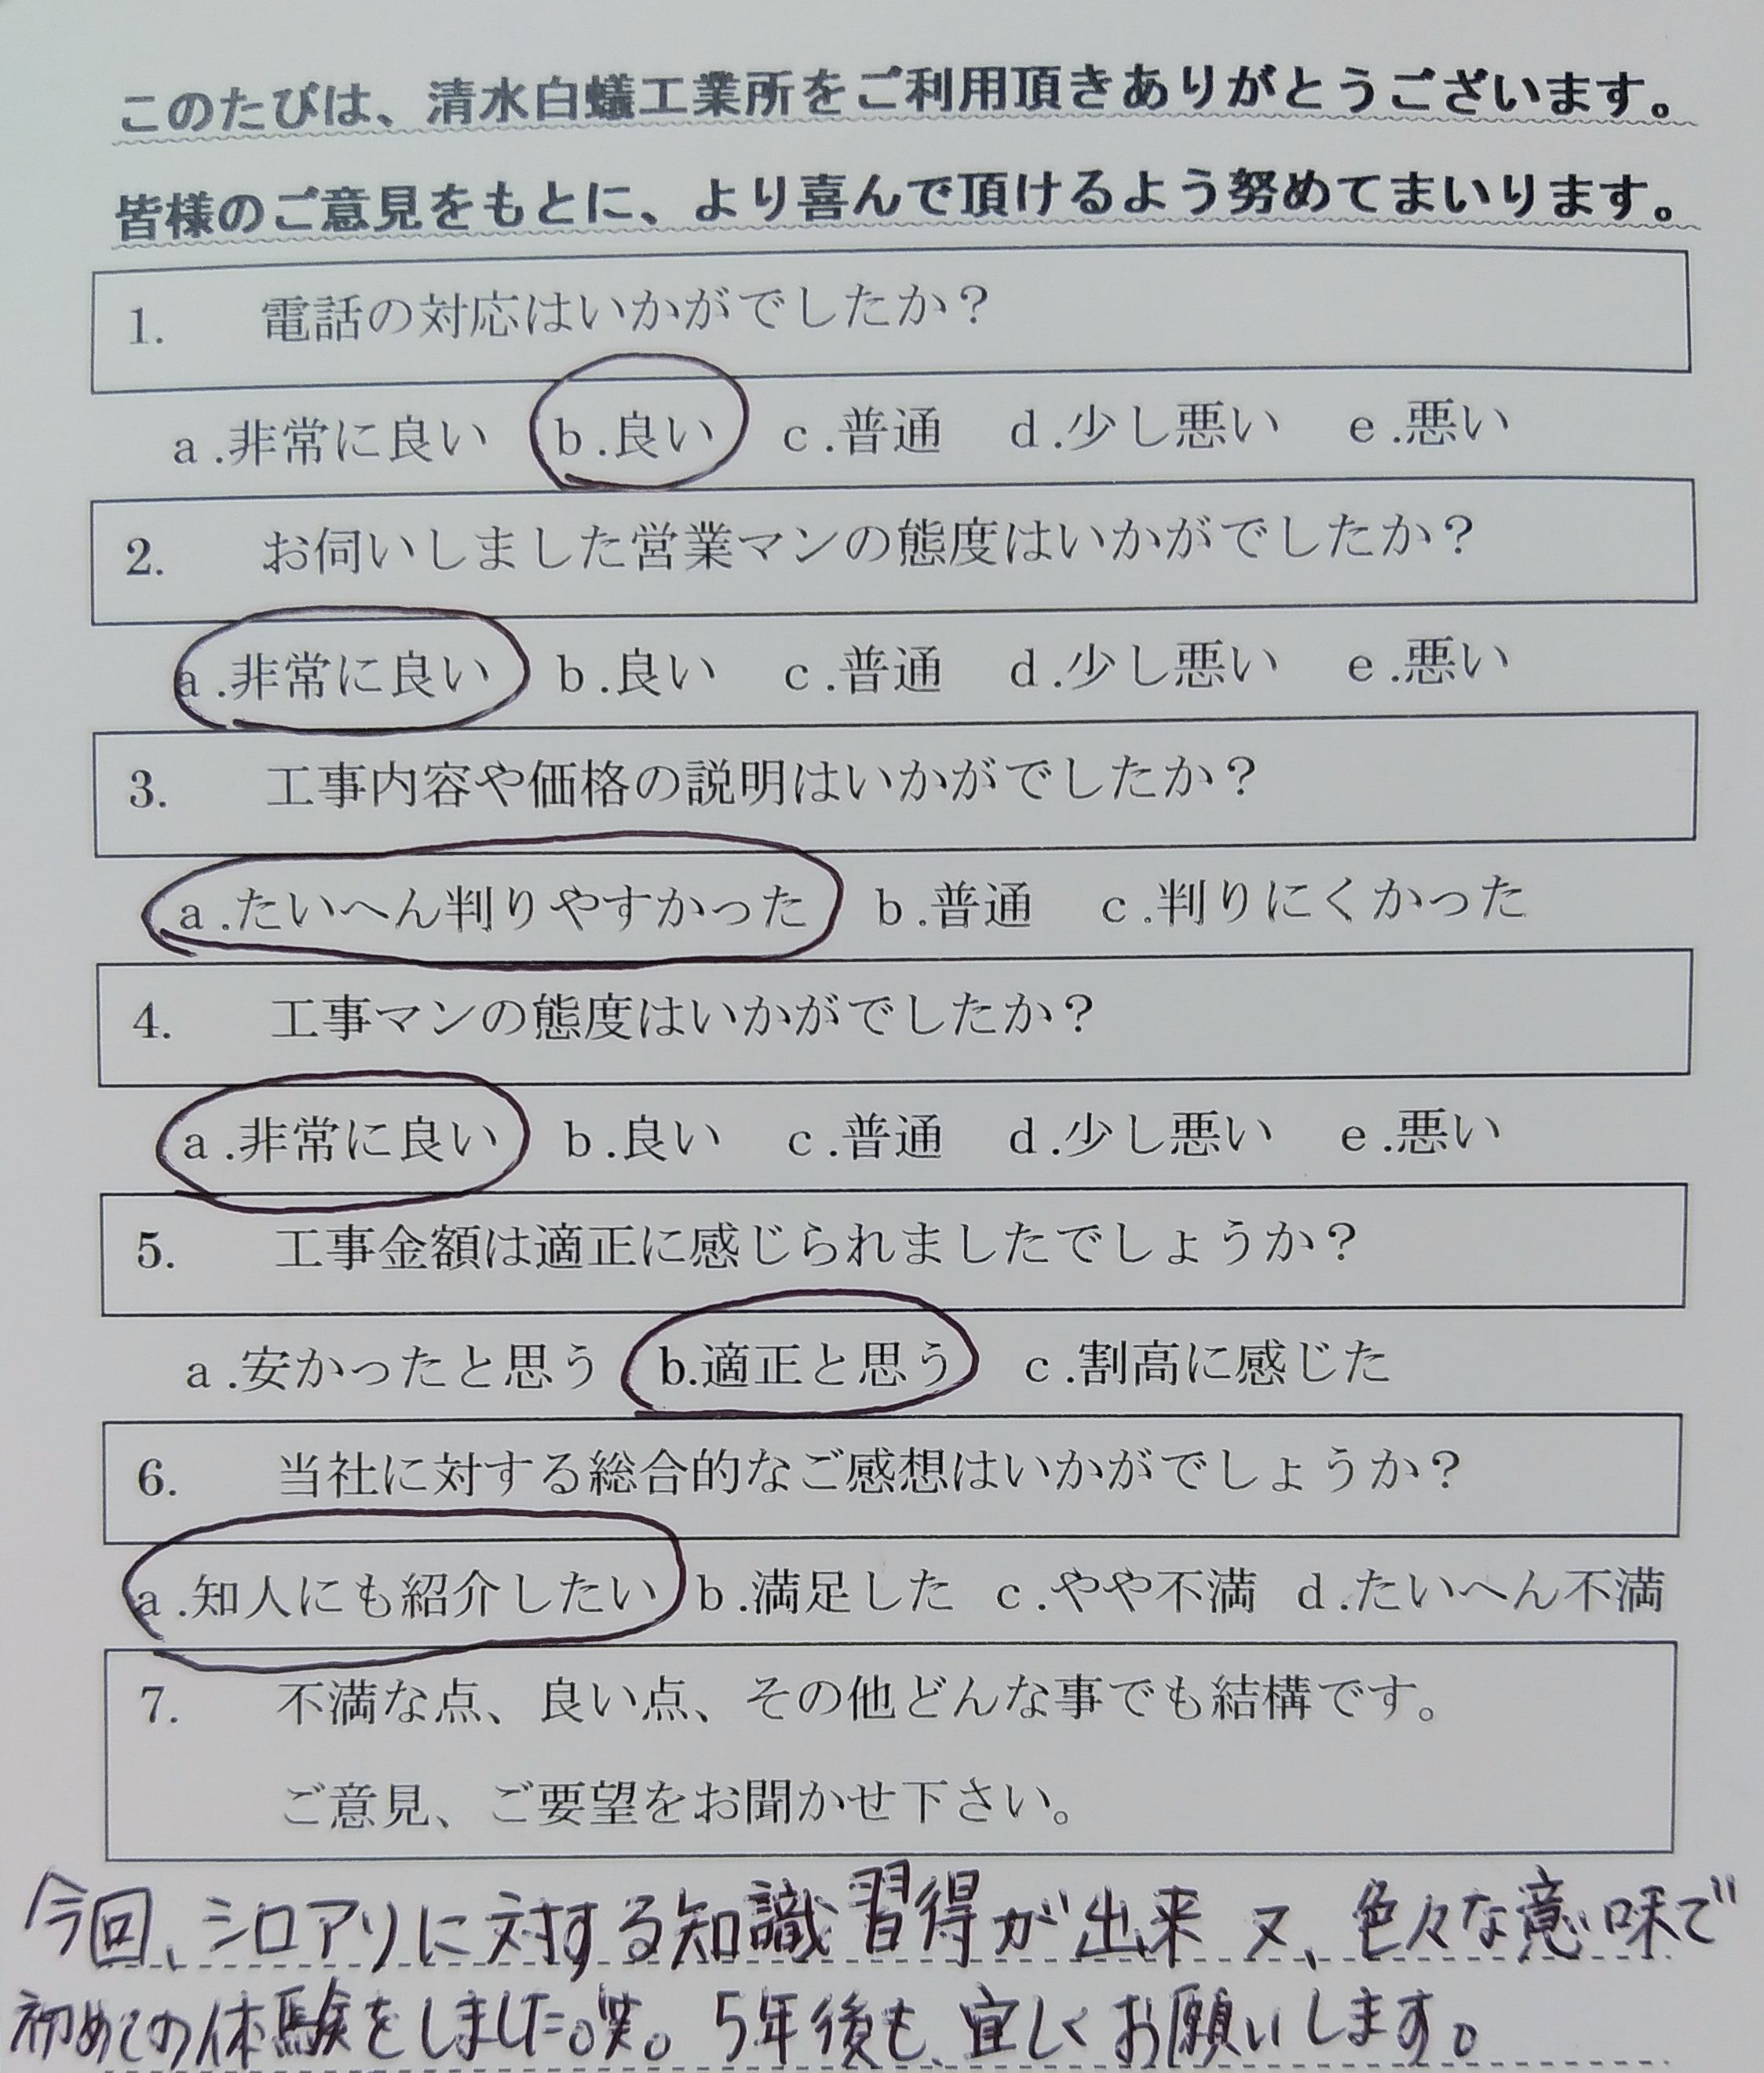 このたびは、清水白蟻工業所をご利用頂きありがとうございます。
皆様のご意見をもとに、より喜んで頂けるよう努めてまいります。
1. 電話の対応はいかがでしたか？
a.非常に良い b.良い c.普通 d.少し悪い e.悪い
2. お伺いしました営業マンの態度はいかがでしたか？
a.非常に良い b.良い c.普通 d.少し悪い e.悪い
3. 工事内容や価格の説明はいかがでしたか？
a.たいへん判りやすかった b.普通 c.判りにくかった
4. 工事マンの態度はいかがでしたか？
a.非常に良い b.良い c.普通 d.少し悪い e.悪い
5. 工事金額は適正に感じられましたでしょうか？
a.安かったと思う b.適正と思う c.割高に感じた
6. 当社に対する総合的なご感想はいかがでしょうか？
a.知人にも紹介したい b.満足した c.やや不満 d.たいへん不満
7. 不満な点、良い点、その他どんな事でも結構です。
ご意見、ご要望をお聞かせ下さい。
今回、シロアリに対する知識習得が出来 又、色々な意味で
初めての体験をしました。笑。5年後も、宜しくお願いします。